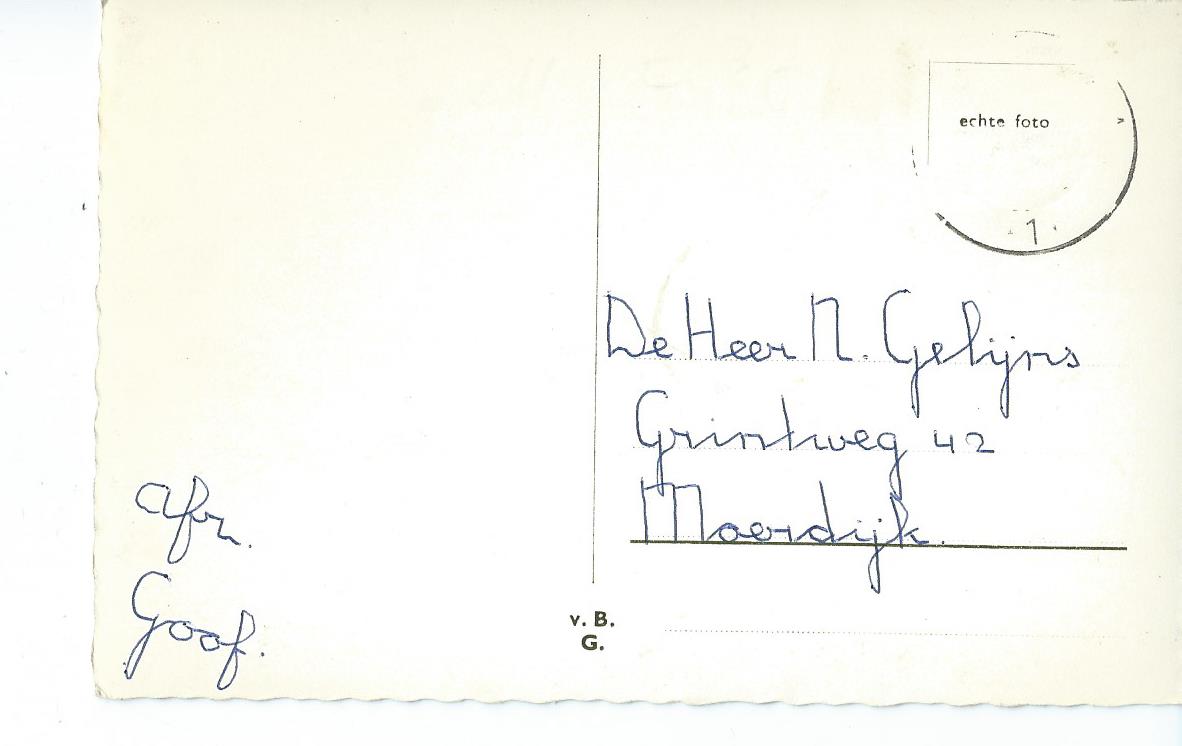 echte foto
1
De Heer N. Gelijns
Grintweg 42
Moerdijk.
afz.
Goof.
v. B.
G.